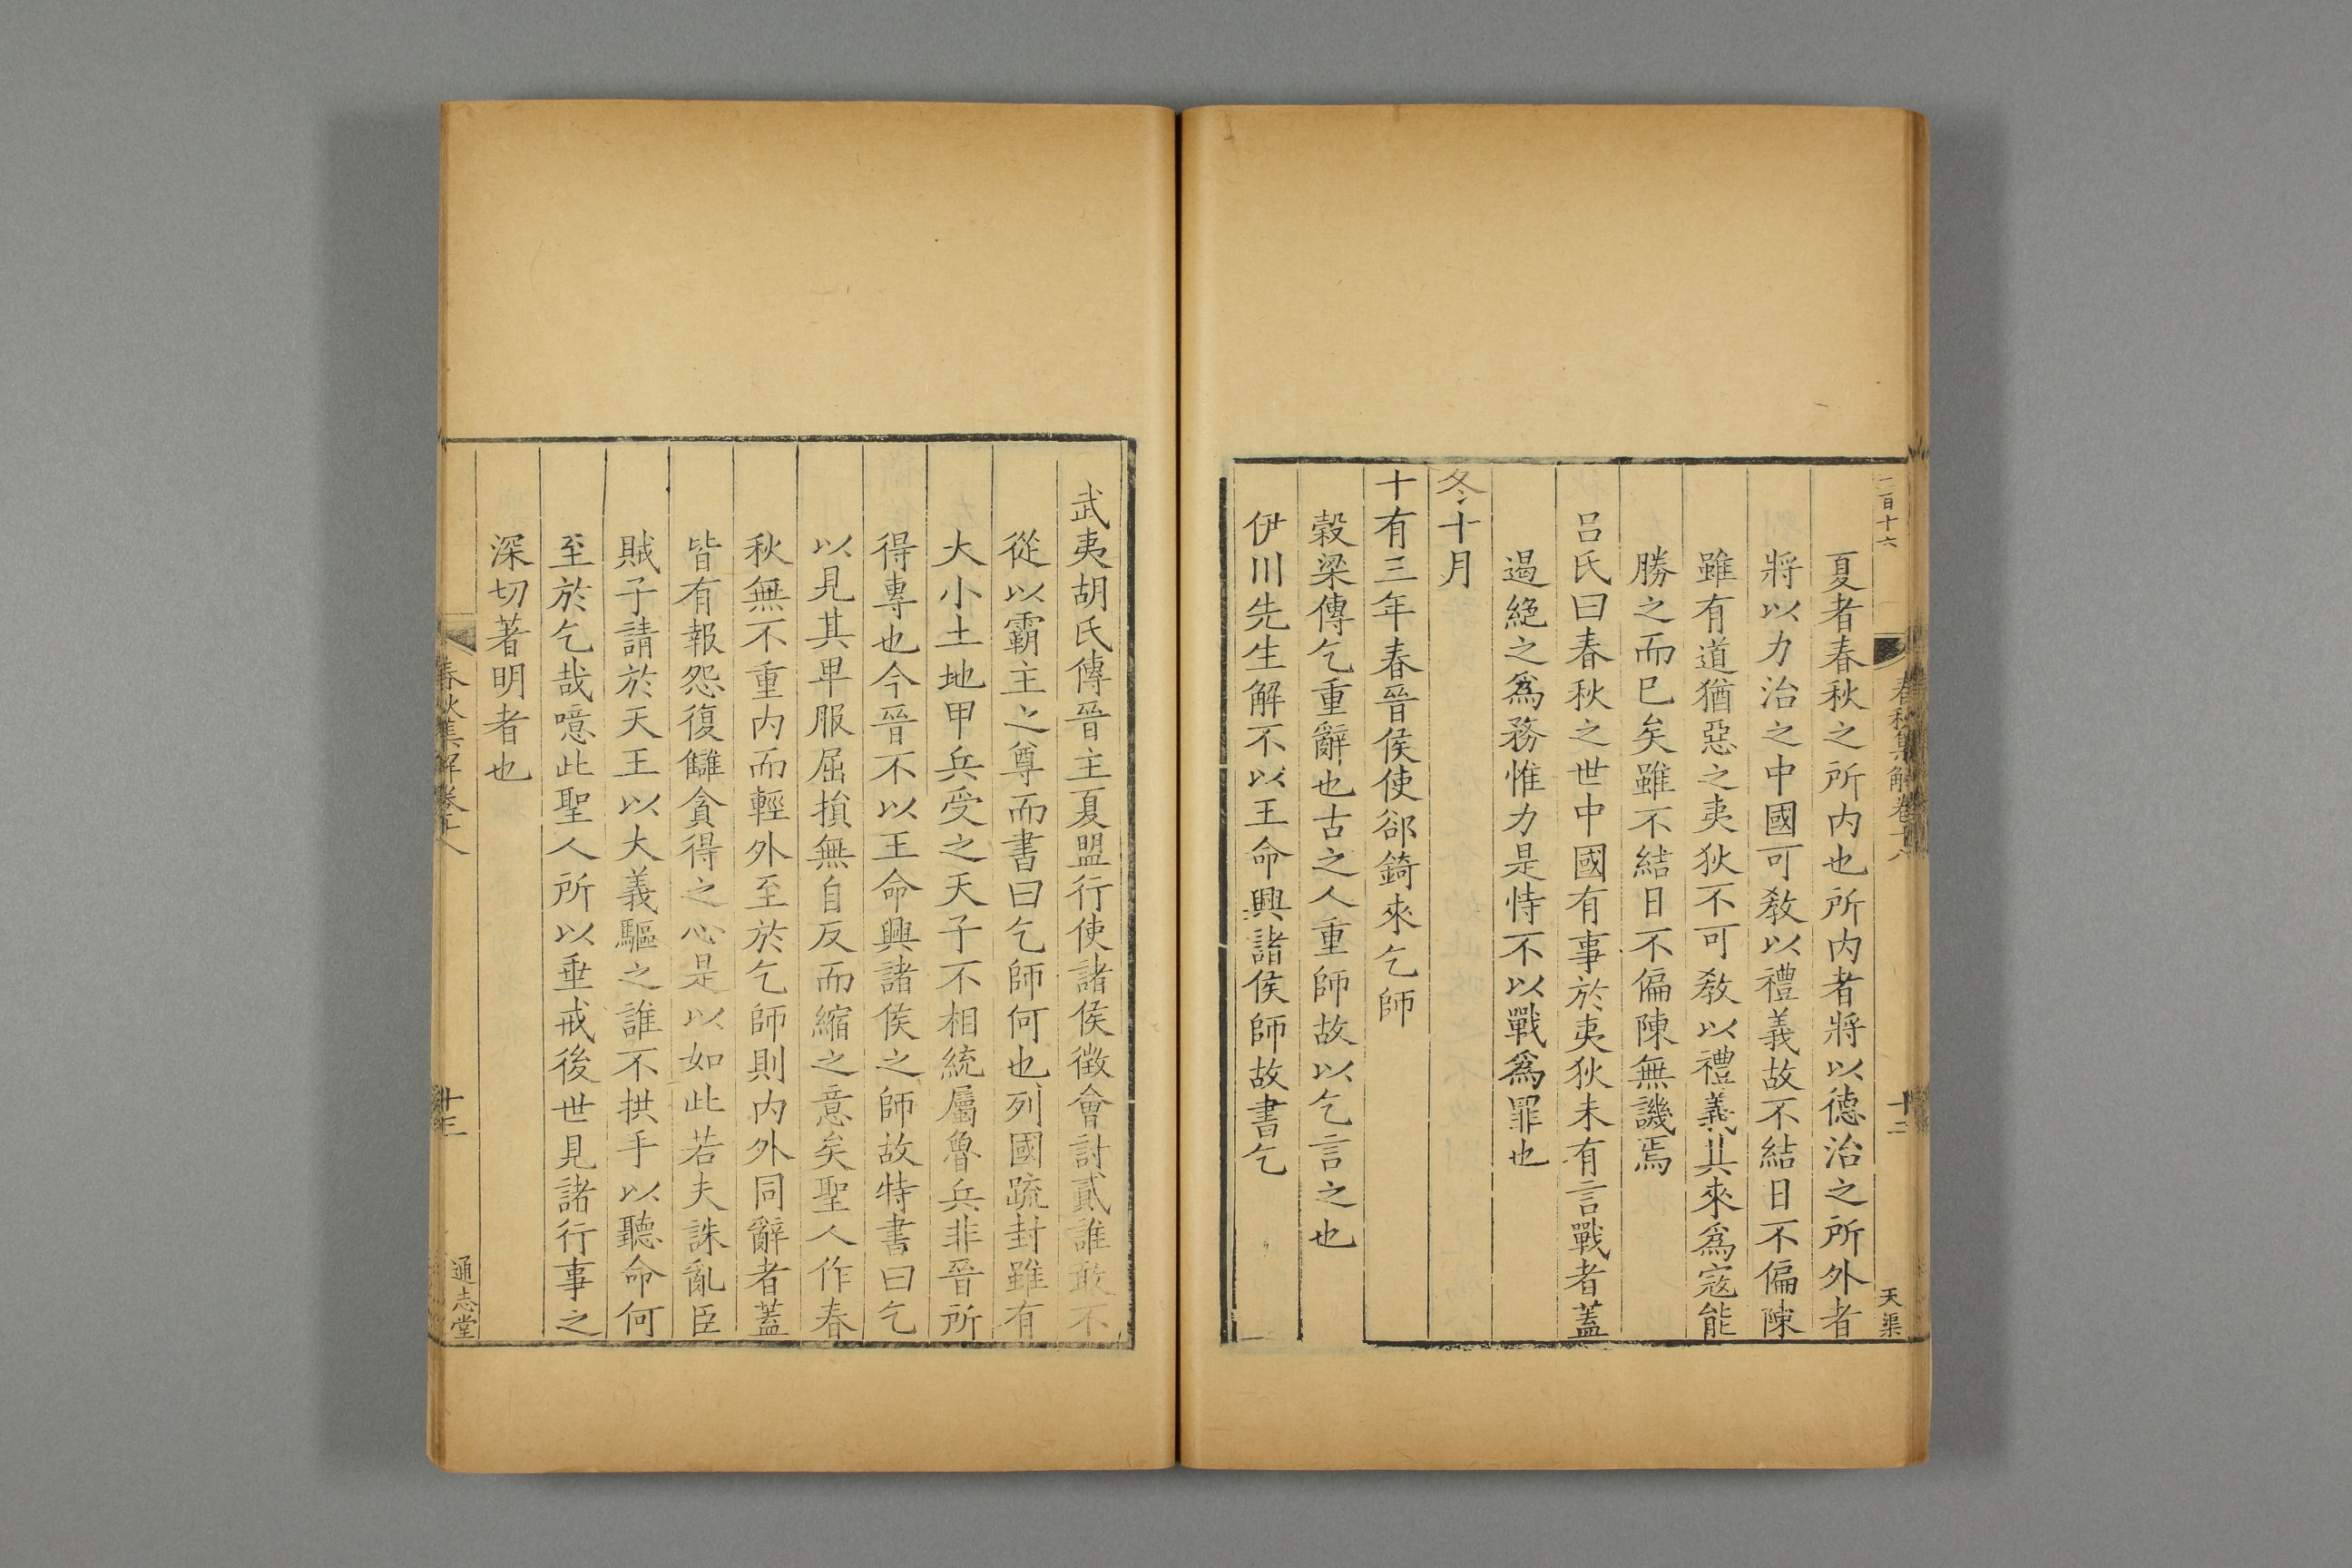 二百十六
春秋集解卷十八
十二
天渠
夏者春秋之所内也所内者將以德治之所外者
將以力治之中國可敎以禮義故不結日不偏陳
雖有道猶惡之夷狄不可敎以禮義其來爲寇能
勝之而巳矣雖不結日不偏陳無譏焉
吕氏曰春秋之世中國有事於夷狄未有言戰者蓋
遏絶之爲務惟力是恃不以戰爲罪也
冬十月
十有三年春晉侯使郤錡來乞師
榖梁傳乞重辭也古之人重師故以乞言之也
伊川先生解不以王命興諸侯師故書乞
武夷胡氏傳晉主夏盟行使諸侯徵會討貳誰敢不
從以霸主之尊而書曰乞師何也列國疏封雖有
大小土地甲兵受之天子不相統屬魯兵非晉所
得專也今晉不以王命興諸侯之師故特書曰乞
以見其卑服屈損無自反而縮之意矣聖人作春
秋無不重内而輕外至於乞師則内外同辭者蓋
皆有報怨復讎貪得之心是以如此若夫誅亂臣
賊子請於天王以大義驅之誰不拱手以聽命何
至於乞哉噫此聖人所以垂戒後世見諸行事之
深切著明者也
春秋集解卷十八
十三
通志堂